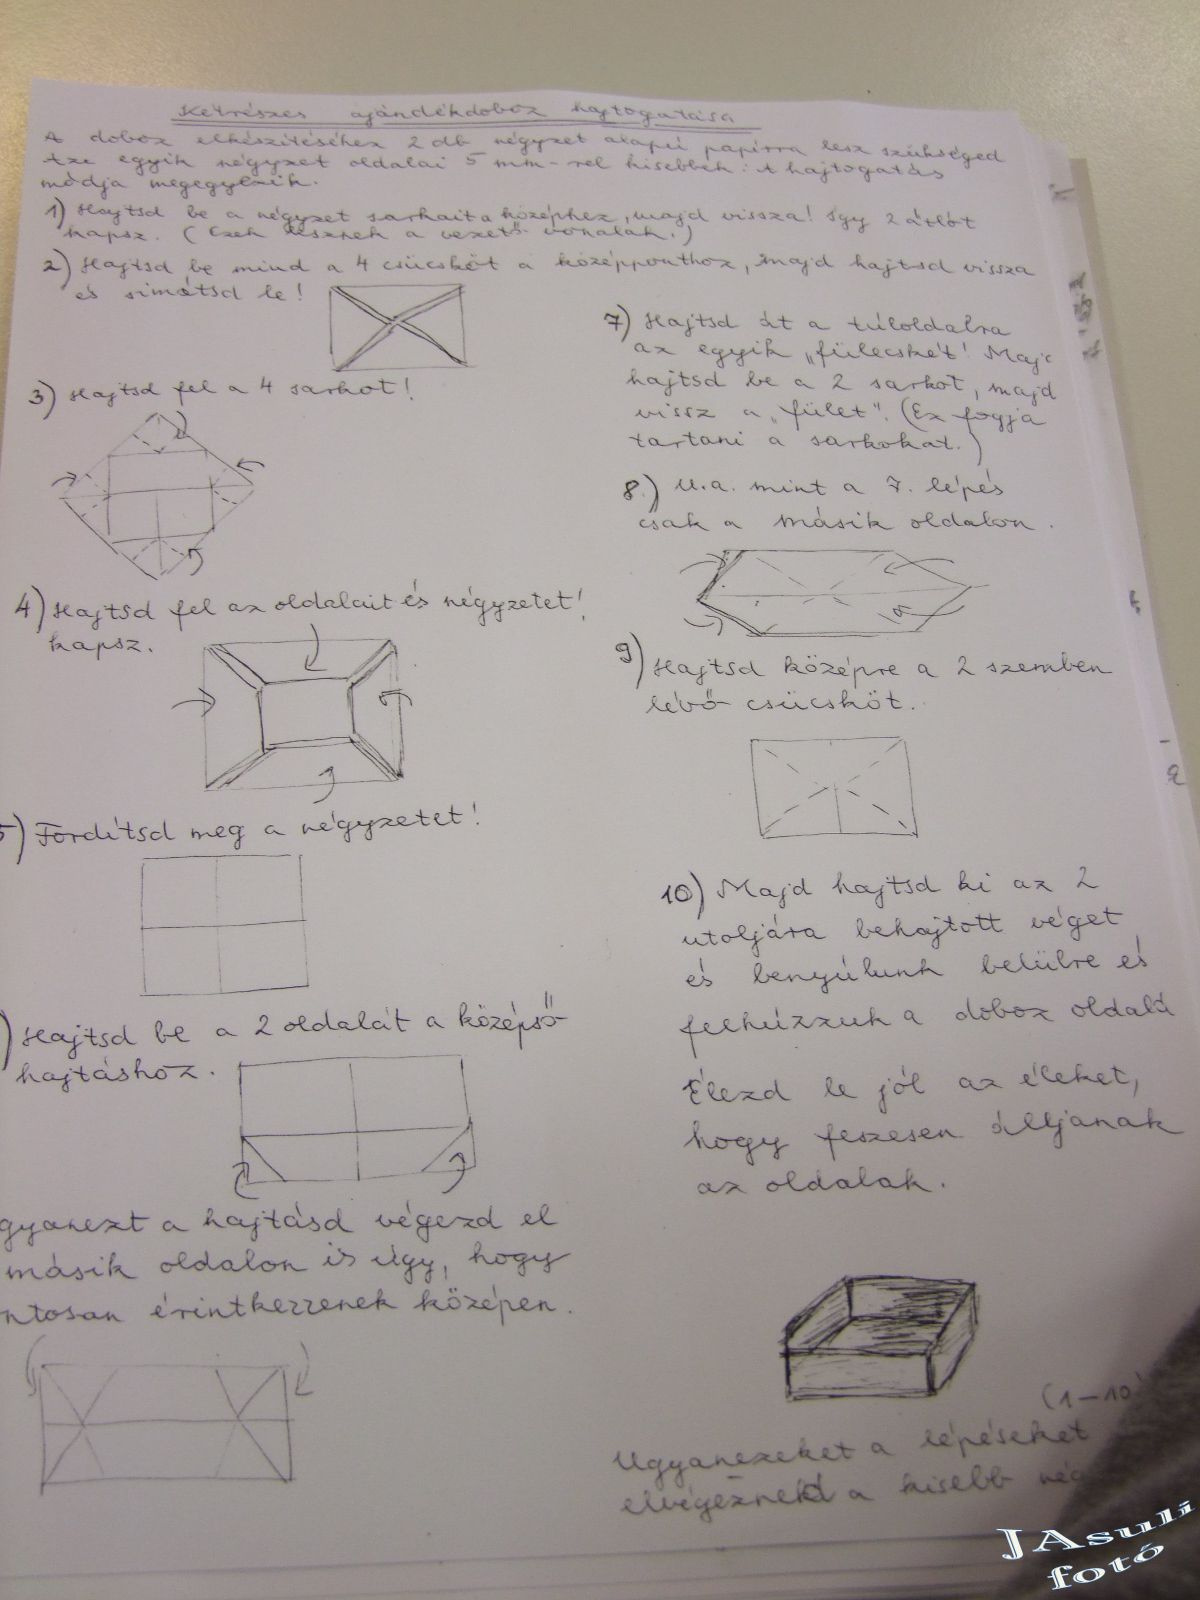 Kétrészes ajándékdoboz hajtogatása
A doboz elkészítéséhez 2 db négyzet alapú papírra lesz szükséged
egyik négyzet oldalai 5 mm-rel kisebbek. A hajtogatás
módja megegyezik.
1) Hajtsd be a négyzet sarkait a középhez, majd vissza! Így 2 átlót
kapsz. (Ezek lesznek a vezető vonalak.)
2) Hajtsd be mind a 4 csücsköt a középponthoz, majd hajtsd vissza
és simítsd le!
3) Hajtsd fel a 4 sarkot!
4) Hajtsd fel az oldalait és négyzetet!
kapsz.
5) Fordítsd meg a négyzetet!
) Hajtsd be a 2 oldalát a középső
hajtáshoz.
gyanezt a hajtásd végezd el
másik oldalon is úgy, hogy
ntosan érintkezzenek középen.
7) Hajtsd át a túloldalra
az egyik „fülecskét! Majd
hajtsd be a 2 sarkot, majd
vissz a „fület". (Ez fogja
tartani a sarkokat.)
8.) U.a. mint a 7. lépés
csak a másik oldalon.
9) Hajtsd középre a 2 szemben
lévő csücsköt.
10) Majd hajtsd ki az 2
utoljára behajtott véget
és benyúlunk belülre és
felhúzzuk a doboz oldalá
Élezd le jól az éleket,
hogy feszesen álljanak
az oldalak.
(1-10)
Ugyanezeket a lépéseket
a kisebb nég
JAsuli
fotó